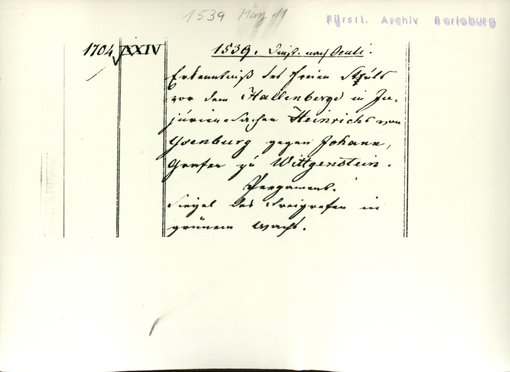 1539 März 11
Fürstl. Archiv Berleburg
1704 XXIV
1539. Dinst. nach Oculi.
Erkenntniß des freien Stuls
vor dem Hallenberge in In-
jurien-Sachen Heinrichs von
Ysenburg gegen Johann,
Grafen zu Wittgenstein.
Pergament.
Siegel des Freigrafen in
grünem Wachs.